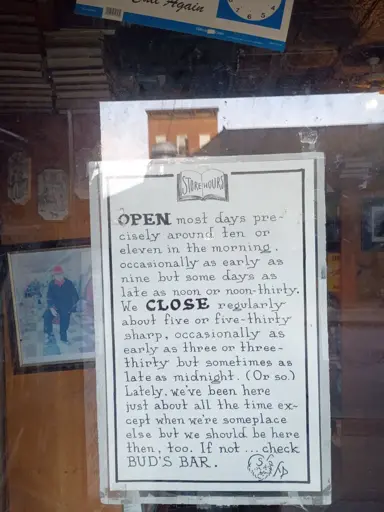 Call Again
7 6 5
STORE HOURS
OPEN most days pre-
cisely around ten or
eleven in the morning,
occasionally as early as
nine but some days as
late as noon or noon-thirty.
We CLOSE regularly
about five or five-thirty
sharp, occasionally as
early as three or three-
thirty but sometimes as
late as midnight. (Or so.)
Lately, we've been here
just about all the time ex-
cept when we're someplace
else but we should be here
then, too. If not ... check
BUD'S BAR.